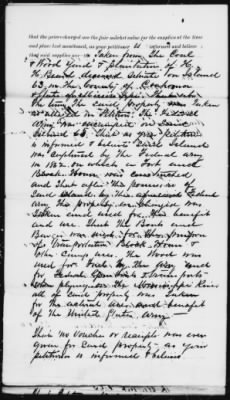 that the prices charged are the fair market value for the supplies at the time
and place last mentioned, as your petitioner is informed and believes
that were taken from The Coal
& Wood Yard & plantation of H.
H. deceased situate on Island
63, in the County of Coahoma
State of Mississippi. That at
the time the said property was taken
as alleged in petition The Federal
Army was encamped on said
Island 63. That as your petitioner
is informed & believes said Island
was captured by the Federal army
in 1862 on which a Fort and
Block House was constructed
and that after the possession
said Island by the Federal
army this property so charged was
taken and used for the benefit
and use. That the Boats and
were used for the
of Transportation Block House &
other Camp uses. The Wood was
used for by the army and
for Federal Gun boats & transports
when plying on the Mississippi River
all of said property was taken
for the actual use and benefit
of the United States Army
That no voucher or receipt was ever
given for said property as your
petitioner is informed & believes